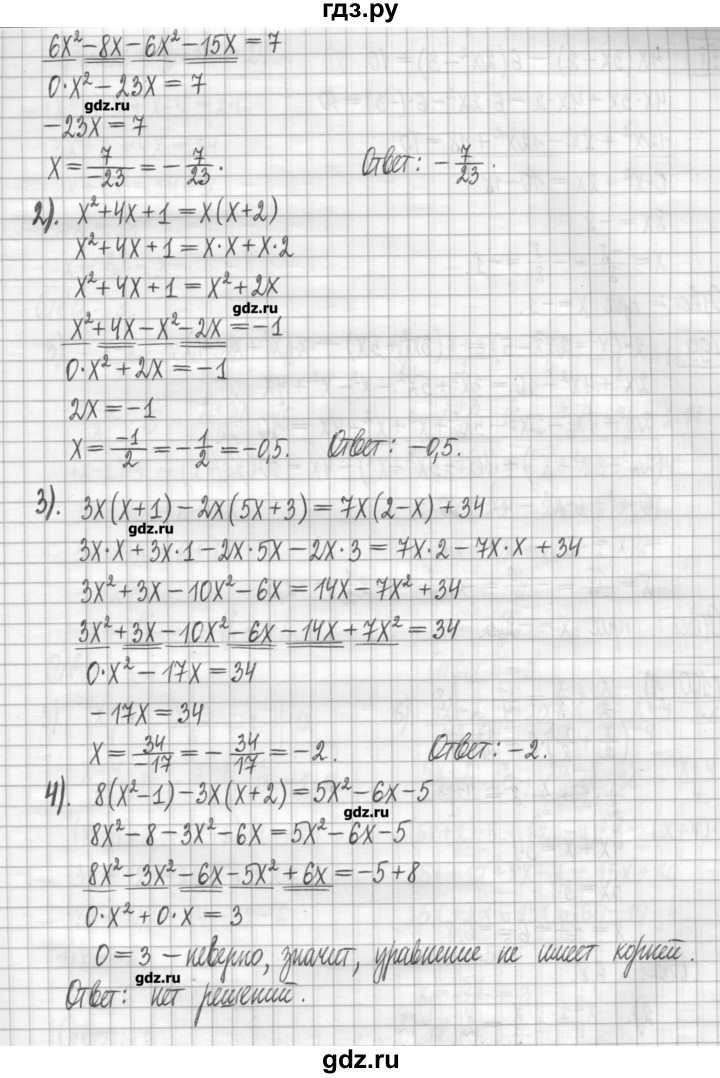 гдз.ру
6x² - 8x - 6x² - 15x = 7
0·x² - 23x = 7
gdz.ru
-23x = 7
x = 7/-23 = -7/23. Ответ: -7/23.
2). x² + 4x + 1 = x(x+2)
x² + 4x + 1 = x·x + x·2
x² + 4x + 1 = x² + 2x
gdz.ru
x² + 4x - x² - 2x = -1
0·x² + 2x = -1
2x = -1
x = -1/2 = -1/2 = -0,5. Ответ: -0,5.
3). 3x(x+1) - 2x(5x+3) = 7x(2-x) + 34
gdz.ru
3x·x + 3x·1 - 2x·5x - 2x·3 = 7x·2 - 7x·x + 34
3x² + 3x - 10x² - 6x = 14x - 7x² + 34
3x² + 3x - 10x² - 6x - 14x + 7x² = 34
0·x² - 17x = 34
-17x = 34
x = 34/-17 = -34/17 = -2. Ответ: -2.
4). 8(x²-1) - 3x(x+2) = 5x² - 6x - 5
gdz.ru
8x² - 8 - 3x² - 6x = 5x² - 6x - 5
8x² - 3x² - 6x - 5x² + 6x = -5 + 8
0·x² + 0·x = 3
0 = 3 - неверно, значит, уравнение не имеет корней.
gdz.ru
Ответ: нет решений.
gdz.ru